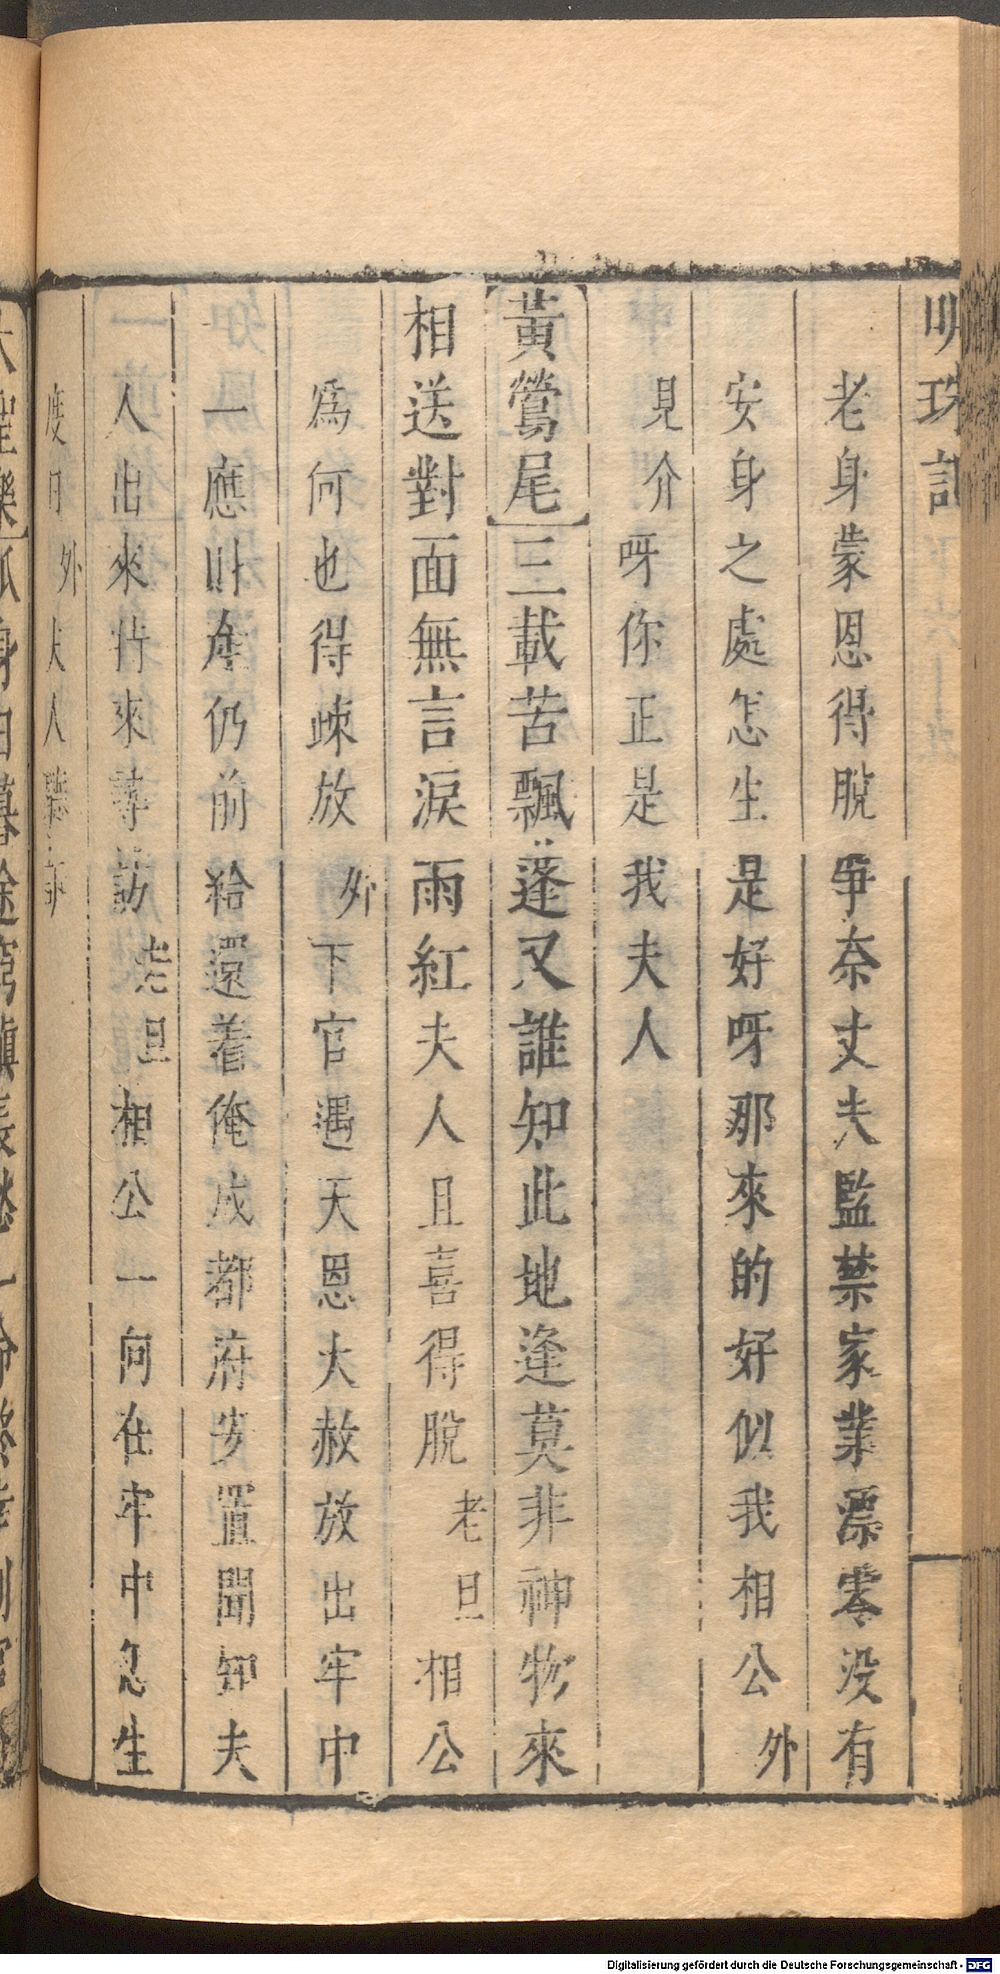 明珠記
老身蒙恩得脫爭奈丈夫監禁家業漂零没有
安身之處怎生是好呀那來的好似我相公外
見介呀你正是我夫人
黃鶯尾三載苦飄蓬又誰知此地逢莫非神物來
相送對面無言淚雨紅夫人且喜得脫老旦相公
爲何也得竦放外下官遇天恩大赦放出牢中
一應財產仍前給還着俺成都府安置聞知夫
人出來特來尋訪老旦相公一向在牢中怎生
度日外夫人聽
Digitalisierung gefördert durch die Deutsche Forschungsgemeinschaft - DFG